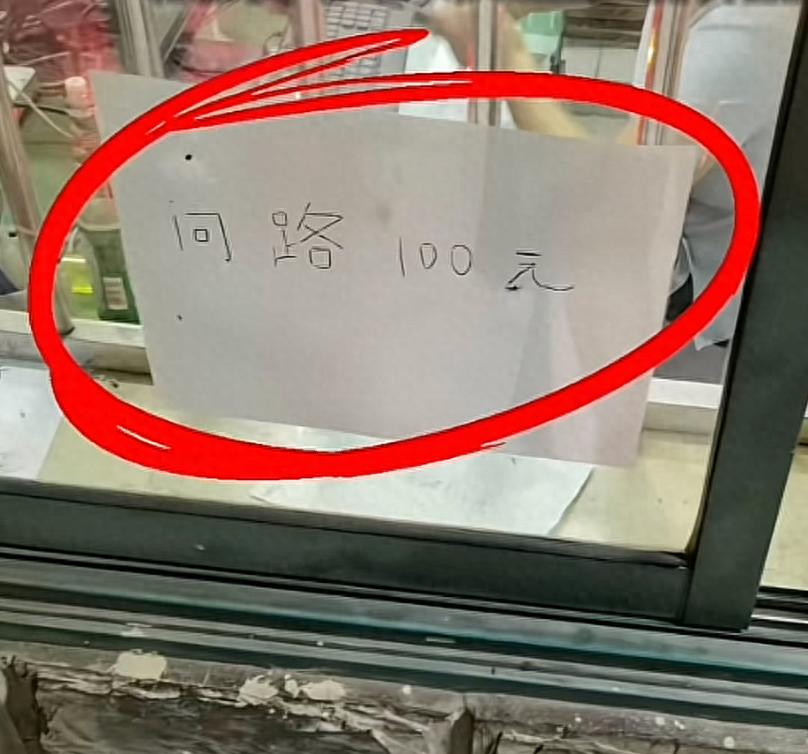 问路 100元